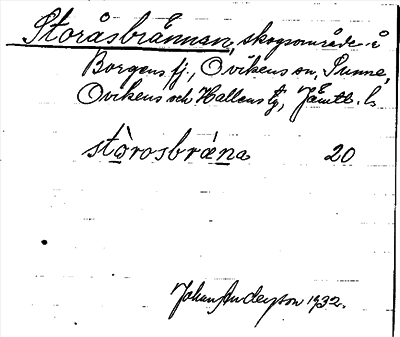 Storåsbrännan, skogsområde i
Borgens fj., Ovikens sn, Sunne,
Ovikens och Hallens tg, Jämtl. l.
stòrosbræna 20
Johan Anderson 1932.